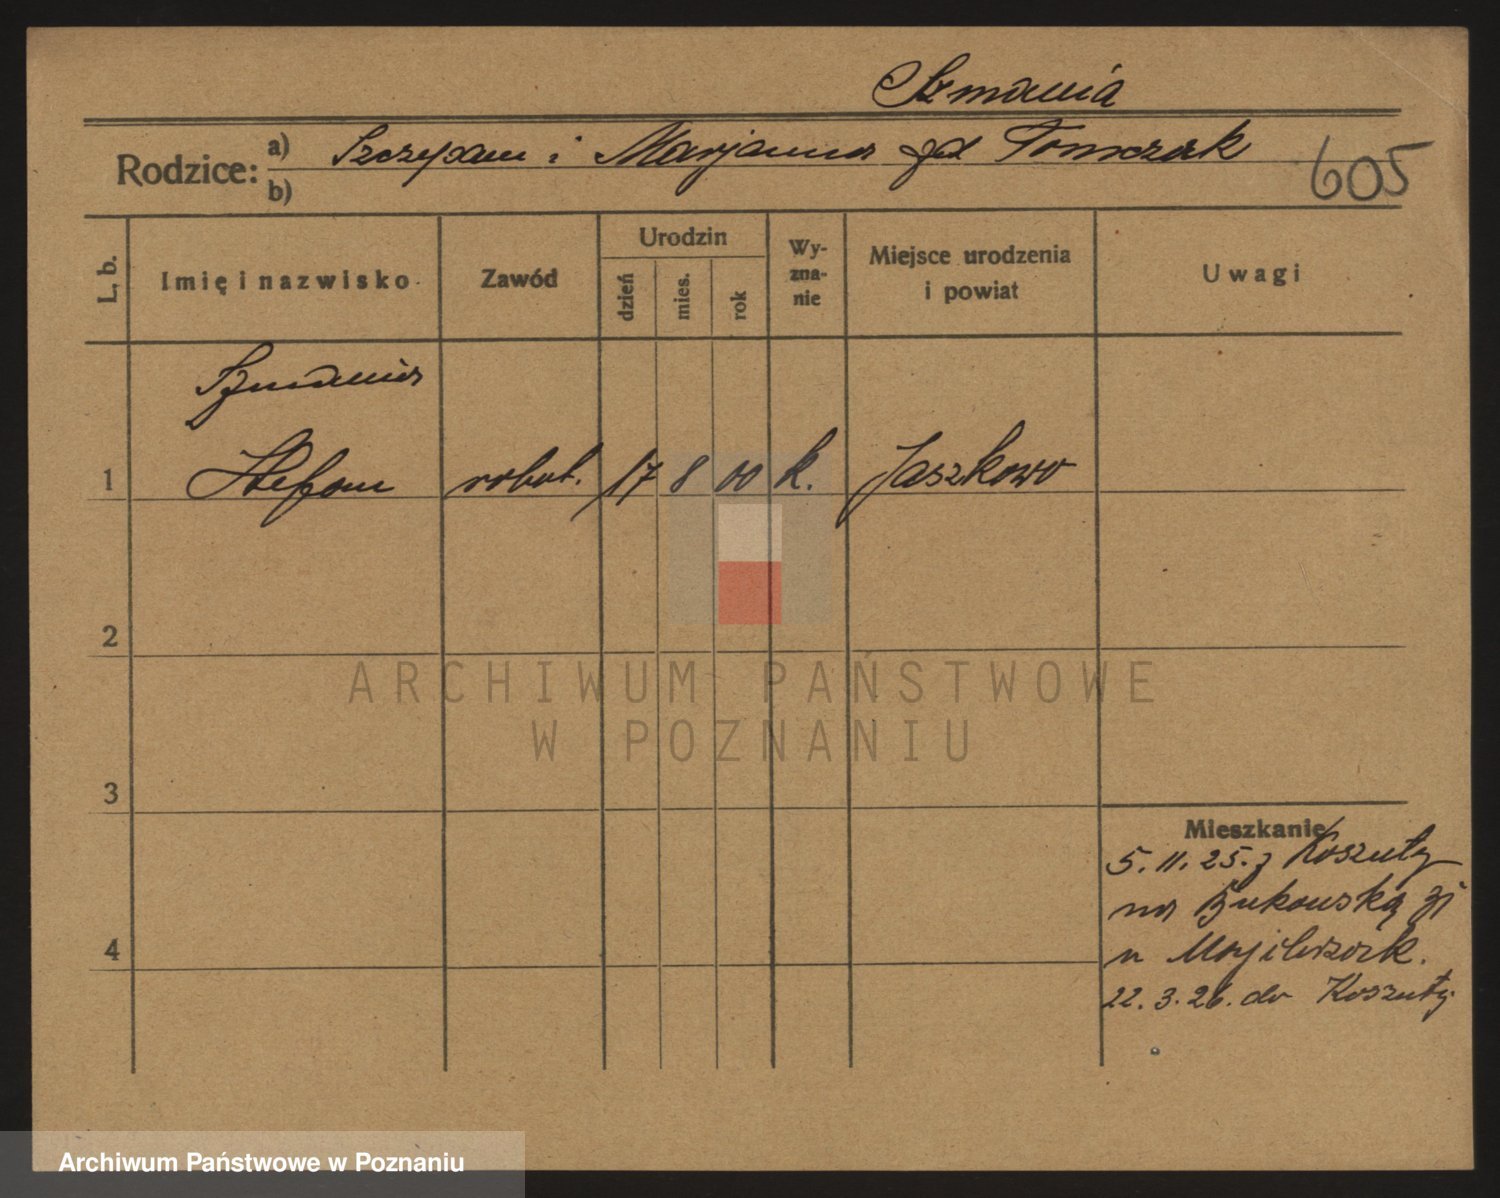 Szmania
Rodzice: a) Szczepan i Marjanna zd Tomczak
b)
605
L. b.
Imię i nazwisko
Zawód
Urodzin
dzień
mies.
rok
Wy-
zna-
nie
Miejsce urodzenia
i powiat
Uwagi
Szmania
1 Stefan robot. 17 8 00 k. Jaszkowo
2
3
4
Mieszkanie
5. 11. 25. z Koszuty
na Bukowską 31
u
22. 3. 26. do Koszuty
ARCHIWUM PAŃSTWOWE
W POZNANIU
Archiwum Państwowe w Poznaniu